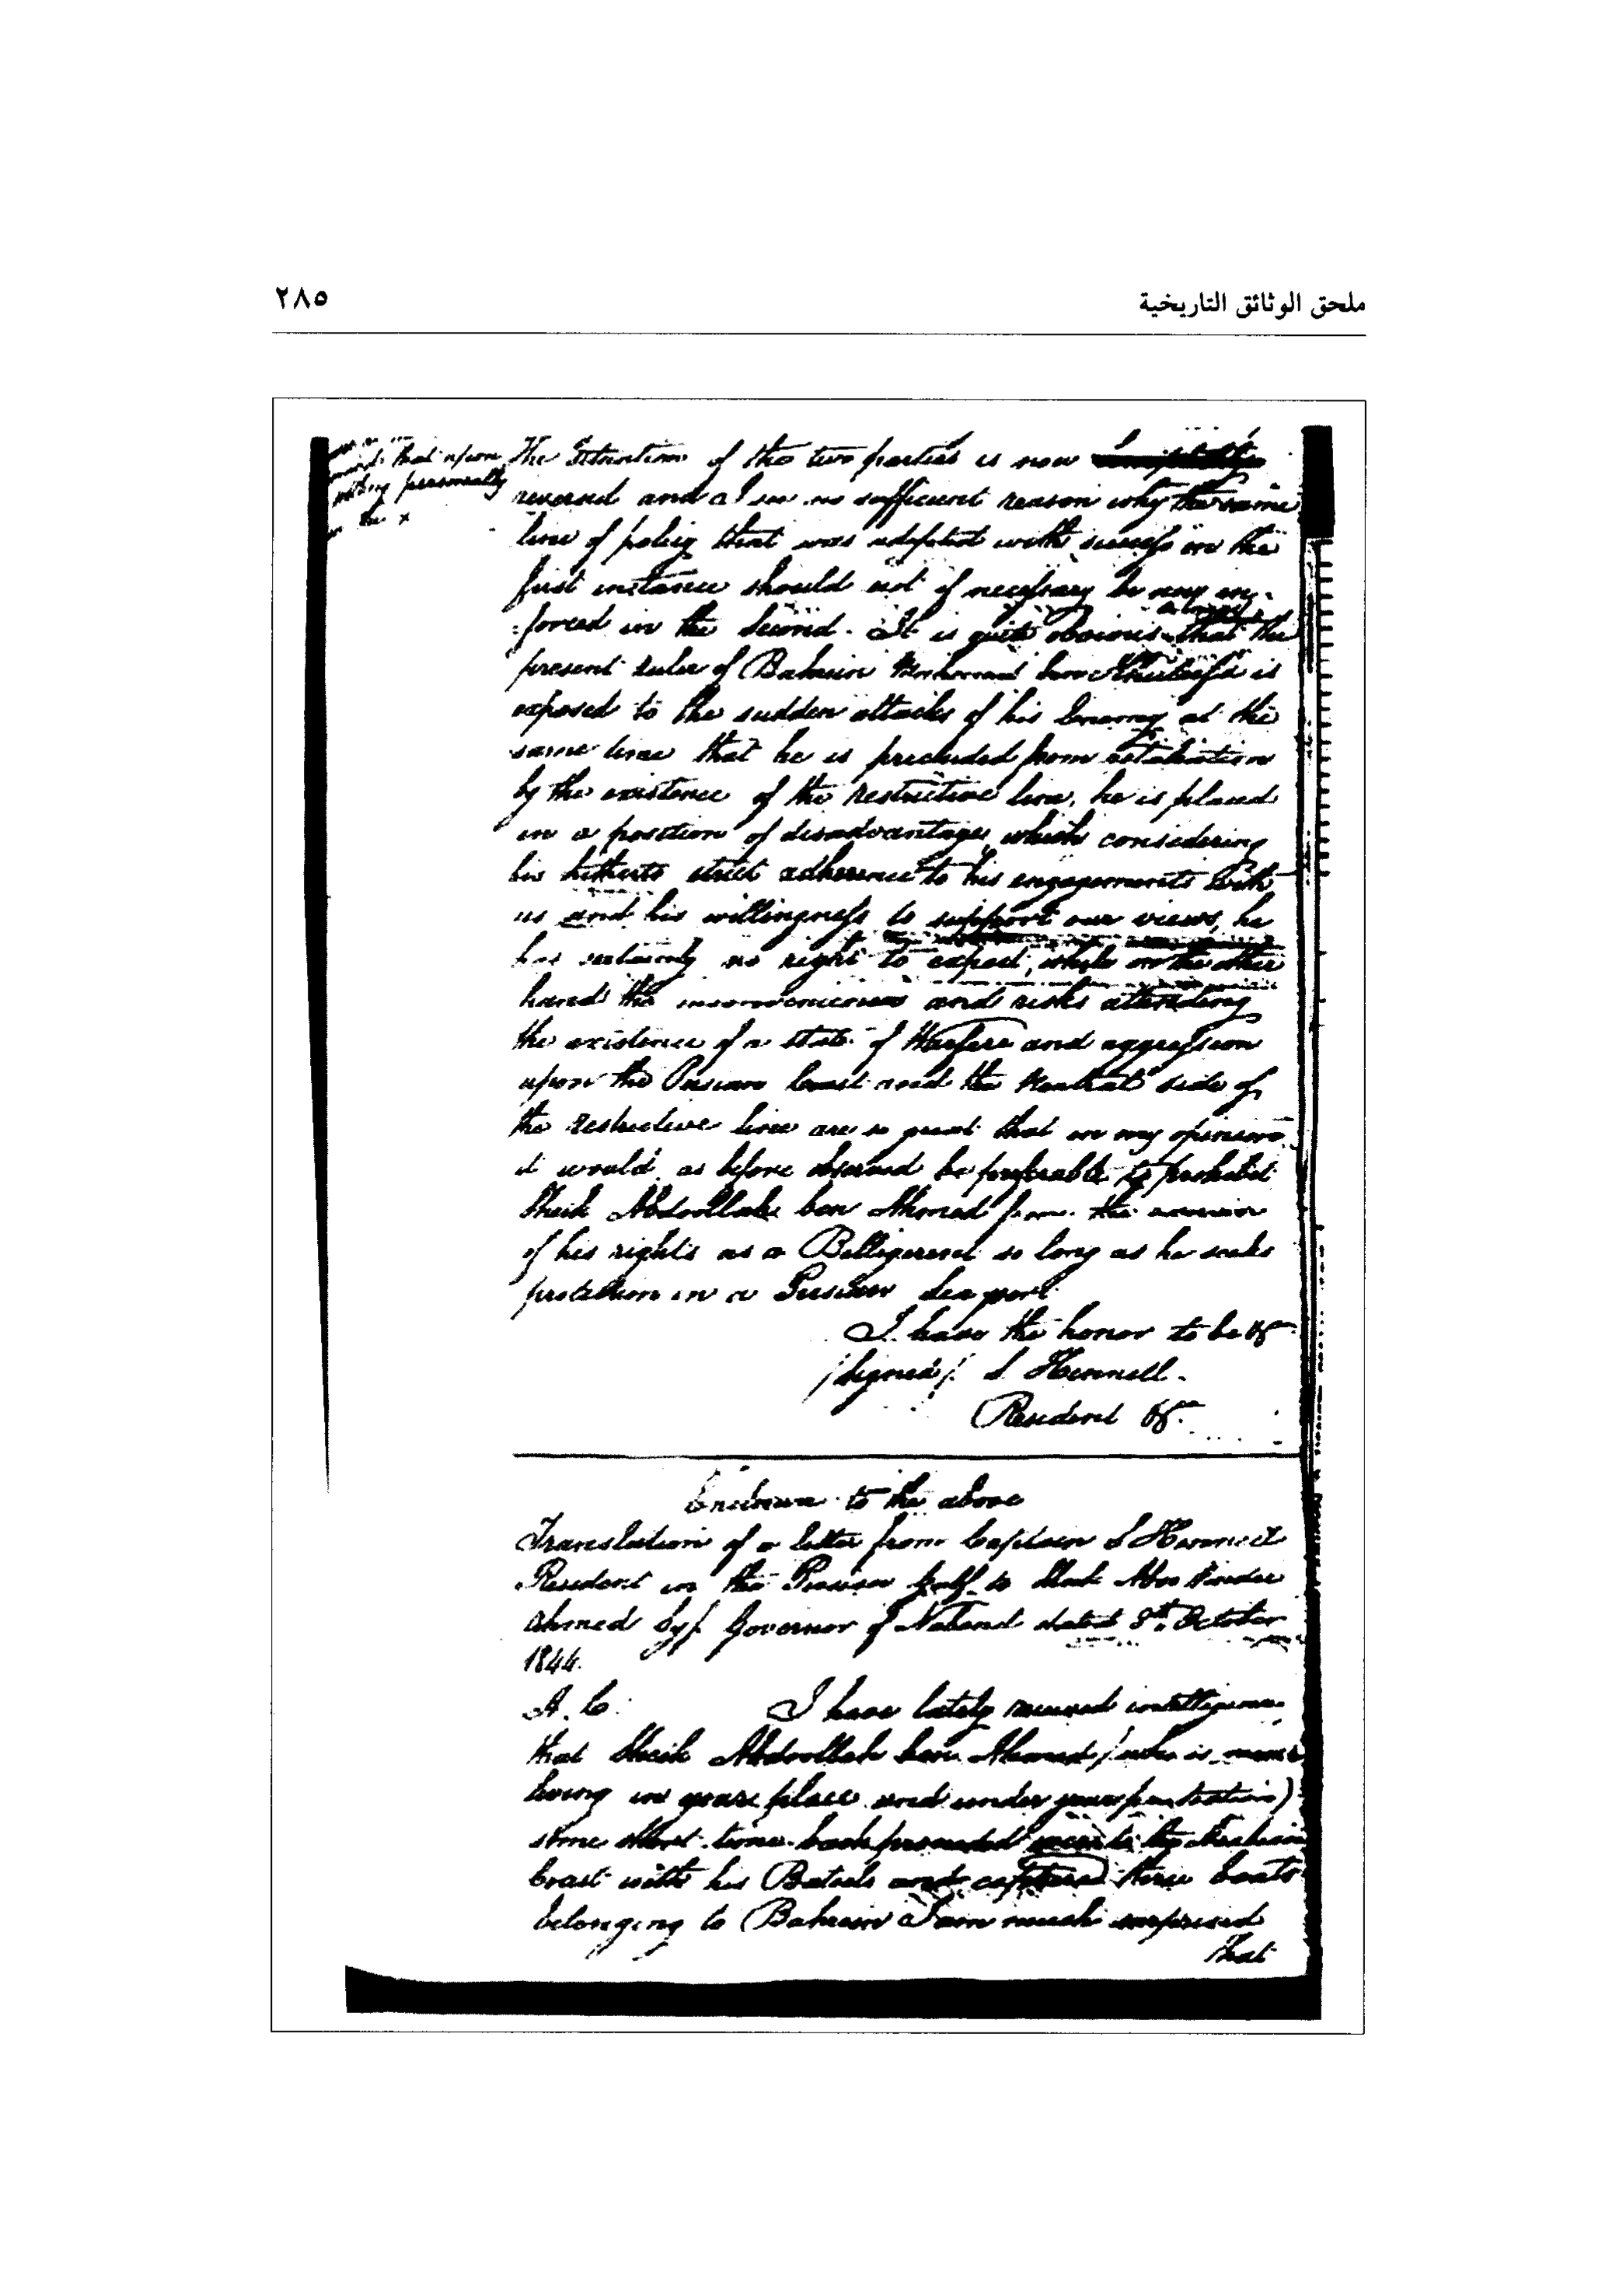 ملحق الوثائق التاريخية
٢٨٥
that upon
personally
the x
The Situation of the two parties is now
reversed and I see no sufficient reason why the same
line of policy that was adopted with success in the
first instance should not if necessary be
forced in the Second. It is quite obvious that the
present ruler of Bahrein is
exposed to the sudden attacks of his Enemy at the
same time that he is precluded from retaliation
by the existence of the restrictive line, he is placed
in a position of disadvantage, which considering
his hitherto strict adherence to his engagements with
us and his willingness to support our views, he
has certainly no right to expect, while on the other
hand the inconveniences and risks attending
the existence of a state of Warfare and aggression
upon the Persian Coast and the Neutral side of
the restrictive line are so great that in my opinion
it would as before observed be preferable to prohibit
Sheik Abdoollah ben Ahmed from the
of his rights as a Belligerent so long as he seeks
protection in a Persian Sea port
I have the honor to be &c
/Signed/ S Hennell.
Resident &c.
Enclosure to the above
Translation of a letter from Captain S Hennell
Resident in the Persian Gulf to Sheik
Ahmed Governor of dated 8th October
1844.
A. C. I have lately received intelligence
that Sheik Abdoollah ben Ahmed / who is
living in your place and under your protection)
some short time back proceeded to the Arabian
Coast with his Bateels and captured three boats
belonging to Bahrein I am much surprised
that